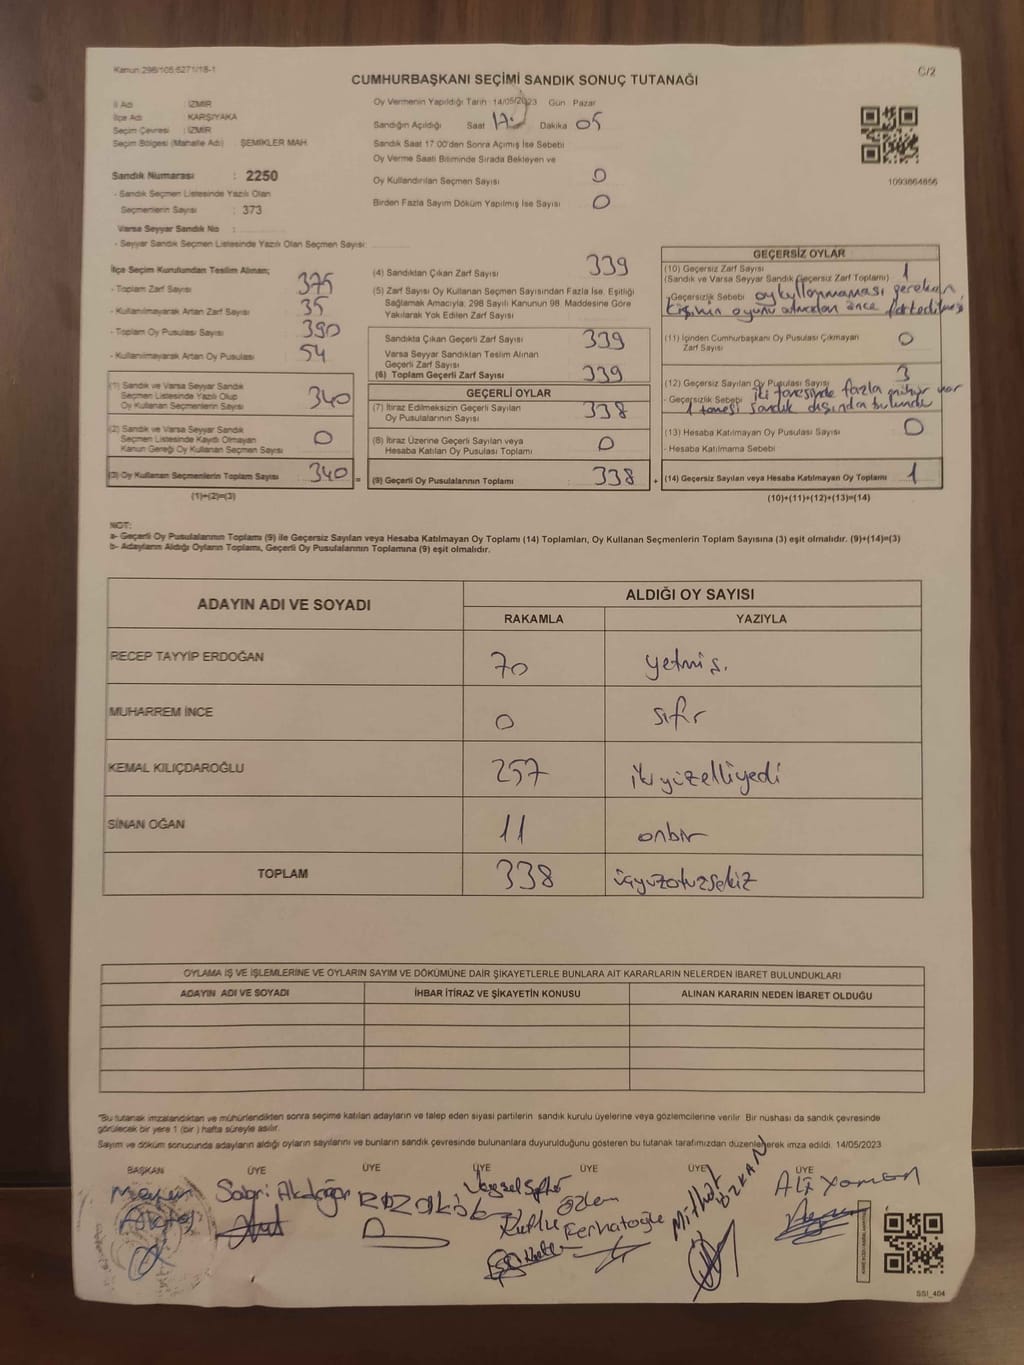 Kanun:298/105;6271/18-1
C/2
CUMHURBAŞKANI SEÇİMİ SANDIK SONUÇ TUTANAĞI
İl Adı : İZMİR
İlçe Adı : KARŞIYAKA
Seçim Çevresi : İZMİR
Seçim Bölgesi (Mahalle Adı) ŞEMİKLER MAH.
Sandık Numarası : 2250
- Sandık Seçmen Listesinde Yazılı Olan
Seçmenlerin Sayısı : 373
Varsa Seyyar Sandık No :
- Seyyar Sandık Seçmen Listesinde Yazılı Olan Seçmen Sayısı:
Oy Vermenin Yapıldığı Tarih 14/05/2023 Gün Pazar
Sandığın Açıldığı Saat 17 Dakika 05
Sandık Saat 17:00'den Sonra Açımış İse Sebebi
Oy Verme Saati Bitiminde Sırada Bekleyen ve
Oy Kullandırılan Seçmen Sayısı 0
Birden Fazla Sayım Döküm Yapılmış İse Sayısı 0
1093664856
İlçe Seçim Kurulundan Teslim Alınan;
- Toplam Zarf Sayısı 375
- Kullanılmayarak Artan Zarf Sayısı 35
- Toplam Oy Pusulası Sayısı 390
- Kullanılmayarak Artan Oy Pusulası 54
(1) Sandık ve Varsa Seyyar Sandık
Seçmen Listesinde Yazılı Olup
Oy Kullanan Seçmenlerin Sayısı 340
(2) Sandık ve Varsa Seyyar Sandık
Seçmen Listesinde Kaydı Olmayan
Kanun Gereği Oy Kullanan Seçmen Sayısı 0
(3) Oy Kullanan Seçmenlerin Toplam Sayısı 340 =
(1)+(2)=(3)
(4) Sandıktan Çıkan Zarf Sayısı 339
(5) Zarf Sayısı Oy Kullanan Seçmen Sayısından Fazla İse, Eşitliği
Sağlamak Amacıyla; 298 Sayılı Kanunun 98. Maddesine Göre
Yakılarak Yok Edilen Zarf Sayısı
Sandıkta Çıkan Geçerli Zarf Sayısı 339
Varsa Seyyar Sandıktan Teslim Alınan
Geçerli Zarf Sayısı
(6) Toplam Geçerli Zarf Sayısı 339
GEÇERLİ OYLAR
(7) İtiraz Edilmeksizin Geçerli Sayılan
Oy Pusulasının Sayısı 338
(8) İtiraz Üzerine Geçerli Sayılan veya
Hesaba Katılan Oy Pusulası Toplamı 0
(9) Geçerli Oy Pusulalarının Toplamı : 338 +
GEÇERSİZ OYLAR
(10) Geçersiz Zarf Sayısı 1
(Sandık ve Varsa Seyyar Sandık Geçersiz Zarf Toplamı)
- Geçersizlik Sebebi oy kullanmaması gereken
kişinin oyunu atmadan önce
(11) İçinden Cumhurbaşkanı Oy Pusulası Çıkmayan
Zarf Sayısı 0
(12) Geçersiz Sayılan Oy Pusulası Sayısı 3
- Geçersizlik Sebebi iki tanesinde fazla mühür var
1 tanesi sandık dışında bulundu
(13) Hesaba Katılmayan Oy Pusulası Sayısı 0
- Hesaba Katılmama Sebebi
(14) Geçersiz Sayılan veya Hesaba Katılmayan Oy Toplamı 1
(10)+(11)+(12)+(13)=(14)
NOT:
a- Geçerli Oy Pusulalarının Toplamı (9) ile Geçersiz Sayılan veya Hesaba Katılmayan Oy Toplamı (14) Toplamları, Oy Kullanan Seçmenlerin Toplam Sayısına (3) eşit olmalıdır. (9)+(14)=(3)
b- Adayların Aldığı Oyların Toplamı, Geçerli Oy Pusulalarının Toplamına (9) eşit olmalıdır.
ADAYIN ADI VE SOYADI
ALDIĞI OY SAYISI
RAKAMLA YAZIYLA
RECEP TAYYİP ERDOĞAN 70 yetmiş.
MUHARREM İNCE 0 sıfır
KEMAL KILIÇDAROĞLU 257 ikiyüzelliyedi
SİNAN OĞAN 11 onbir
TOPLAM 338 üçyüzotuzsekiz
OYLAMA İŞ VE İŞLEMLERİNE VE OYLARIN SAYIM VE DÖKÜMÜNE DAİR ŞİKAYETLERLE BUNLARA AİT KARARLARIN NELERDEN İBARET BULUNDUKLARI
ADAYIN ADI VE SOYADI İHBAR İTİRAZ VE ŞİKAYETİN KONUSU ALINAN KARARIN NEDEN İBARET OLDUĞU
"Bu tutanak imzalandıktan ve mühürlendikten sonra seçime katılan adayların ve talep eden siyasi partilerin sandık kurulu üyelerine veya gözlemcilerine verilir. Bir nüshası da sandık çevresinde
görülecek bir yere 1 (bir) hafta süreyle asılır.
Sayım ve döküm sonucunda adayların aldığı oyların sayılarını ve bunların sandık çevresinde bulunanlara duyurulduğunu gösteren bu tutanak tarafımızdan düzenlenerek imza edildi. 14/05/2023
BAŞKAN ÜYE ÜYE ÜYE ÜYE ÜYE ÜYE
Sabri Özlem Ferhatoğlu Mithat ÖZKAN Ali Yaman
SSI_404